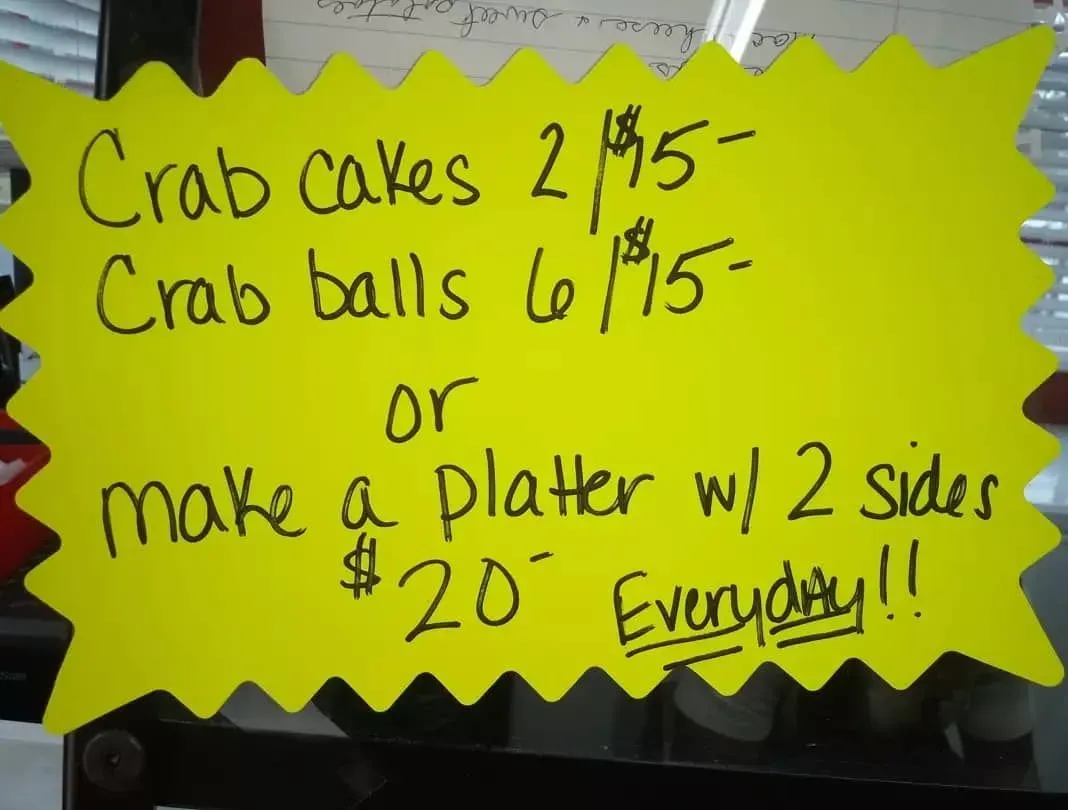 cheese & sweet potatoes
Crab cakes 2/$15-
Crab balls 6/$15-
or
make a platter w/ 2 sides
$20- Everyday!!